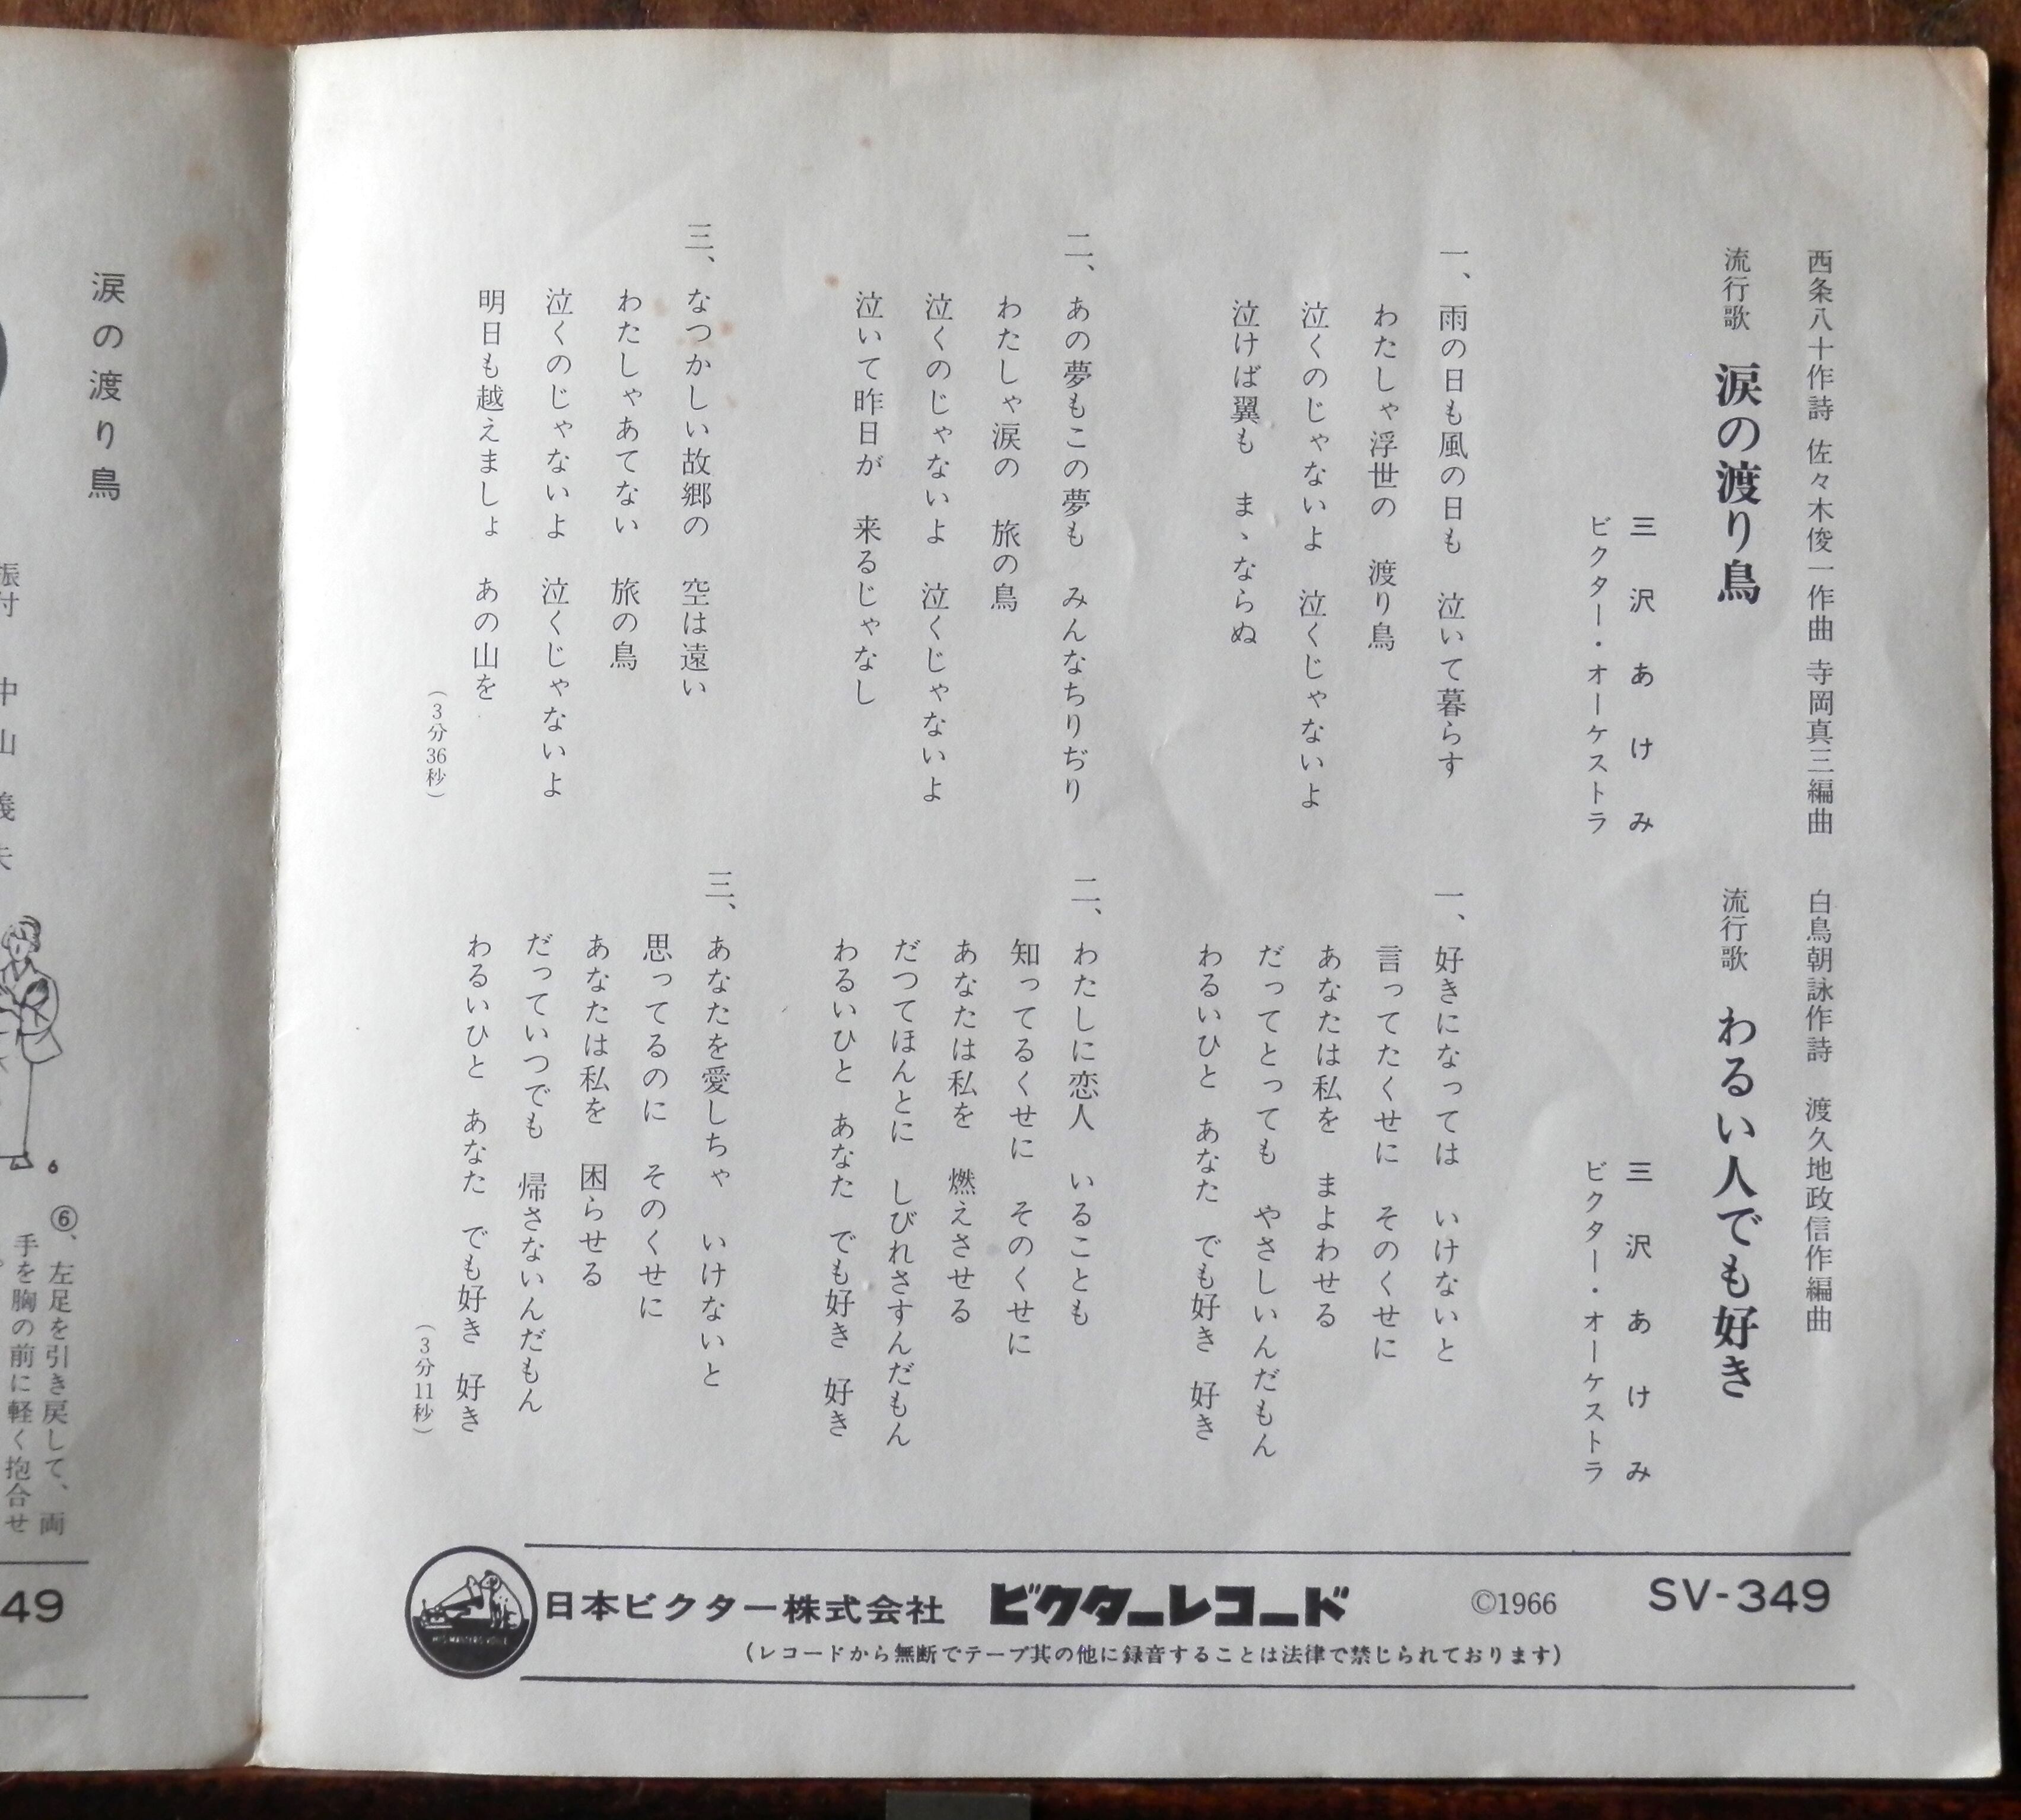 西条八十作詩 佐々木俊一作曲 寺岡真三編曲
流行歌 涙の渡り鳥
三沢あけみ
ビクター・オーケストラ
一、雨の日も風の日も 泣いて暮らす
わたしゃ浮世の 渡り鳥
泣くのじゃないよ 泣くじゃないよ
泣けば翼も まゝならぬ
二、あの夢もこの夢も みんなちりぢり
わたしゃ涙の 旅の鳥
泣くのじゃないよ 泣くじゃないよ
泣いて昨日が 来るじゃなし
三、なつかしい故郷の 空は遠い
わたしゃあてない 旅の鳥
泣くのじゃないよ 泣くじゃないよ
明日も越えましょ あの山を
(3分36秒)
白鳥朝詠作詩 渡久地政信作編曲
流行歌 わるい人でも好き
三沢あけみ
ビクター・オーケストラ
一、好きになっては いけないと
言ってたくせに そのくせに
あなたは私を まよわせる
だってとっても やさしいんだもん
わるいひと あなた でも好き 好き
二、わたしに恋人 いることも
知ってるくせに そのくせに
あなたは私を 燃えさせる
だつてほんとに しびれさすんだもん
わるいひと あなた でも好き 好き
三、あなたを愛しちゃ いけないと
思ってるのに そのくせに
あなたは私を 困らせる
だっていつでも 帰さないんだもん
わるいひと あなた でも好き 好き
(3分11秒)
日本ビクター株式会社 ビクターレコード ©1966 SV-349
(レコードから無断でテープ其の他に録音することは法律で禁じられております)
HIS MASTERS VOICE
涙の渡り鳥
振付 中山義夫
6
⑥、左足を引き戻して、両
手を胸の前に軽く抱合せ
49